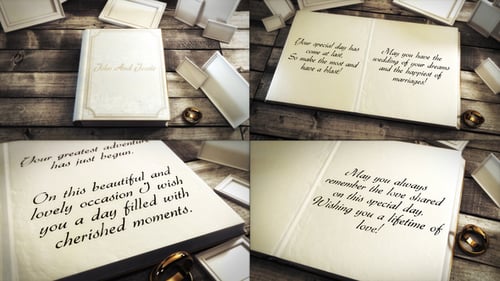 John And Jessie
Your special day has
come at last.
So make the most and
have a blast!
May you have the
wedding of your dreams
and the happiest of
marriages!
Your greatest adventure
has just begun.
On this beautiful and
lovely occasion I wish
you a day filled with
cherished moments.
May you always
remember the love shared
on this special day.
Wishing you a lifetime of
love!